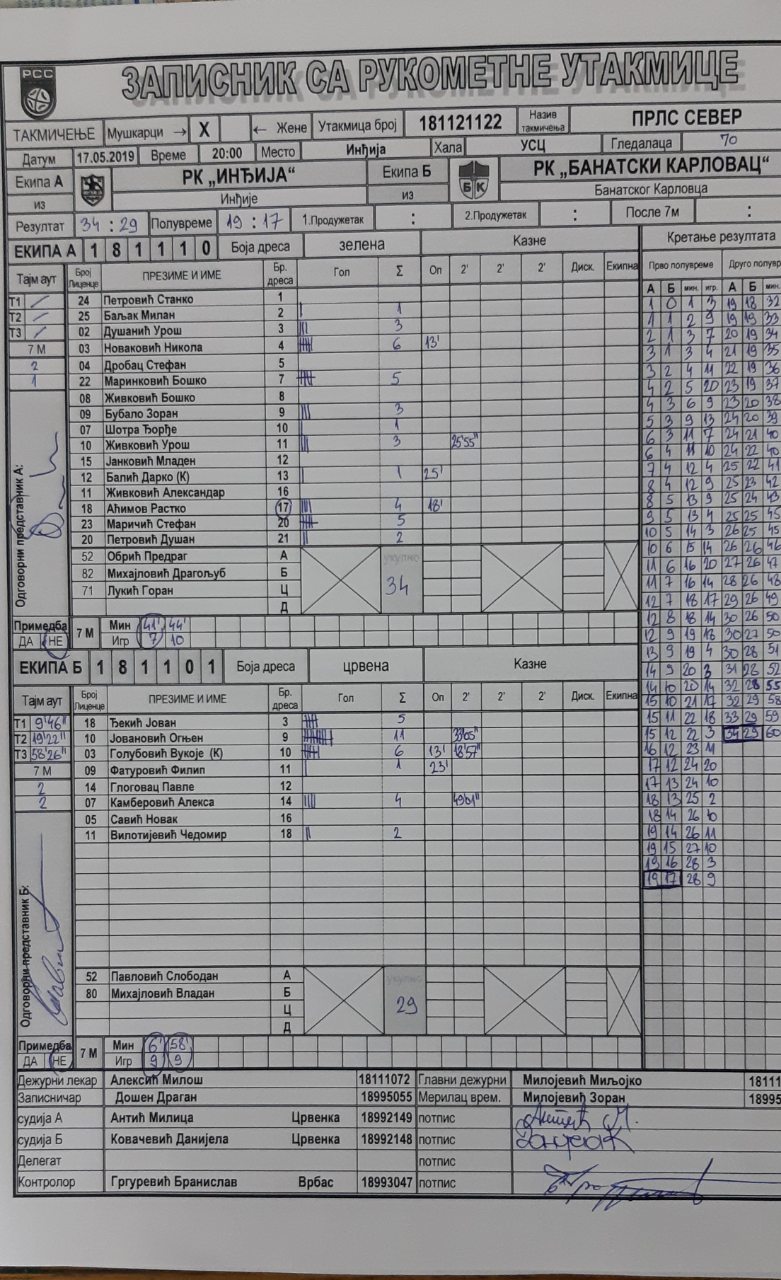 РСС
ЗАПИСНИК СА РУКОМЕТНЕ УТАКМИЦЕ
ТАКМИЧЕЊЕ Мушкарци → X ← Жене Утакмица број 181121122 Назив такмичења ПРЛС СЕВЕР
Датум 17.05.2019 Време 20:00 Место Инђија Хала УСЦ Гледалаца 70
Екипа А РК „ИНЂИЈА” Екипа Б БК РК „БАНАТСКИ КАРЛОВАЦ”
из Инђије из Банатског Карловца
Резултат 34 : 29 Полувреме 19 : 17 1.Продужетак : 2.Продужетак : После 7м :
ЕКИПА А 1 8 1 1 1 0 Боја дреса зелена Казне Кретање резултата
Тајм аут Број Лиценце ПРЕЗИМЕ И ИМЕ Бр. дреса Гол Σ Оп 2' 2' 2' Диск. Екипна Прво полувреме Друго полувр
А Б мин. игр. А Б мин
Т1 24 Петровић Станко 1
Т2 25 Баљак Милан 2 1
Т3 02 Душанић Урош 3 3
7 М 03 Новаковић Никола 4 6 13'
2 04 Дробац Стефан 5
1 22 Маринковић Бошко 7 5
08 Живковић Бошко 8
09 Бубало Зоран 9 3
07 Шотра Ђорђе 10 1
10 Живковић Урош 11 3 25'55"
15 Јанковић Младен 12
12 Балић Дарко (К) 13 1 25'
11 Живковић Александар 16
18 Аћимов Растко 17 4 18'
23 Маричић Стефан 20 5
20 Петровић Душан 21 2
52 Обрић Предраг А укупно
82 Михајловић Драгољуб Б 34
71 Лукић Горан Ц
Д
Одговорни представник А:
Примедба 7 М Мин 41' 44'
ДА НЕ Игр 7 10
ЕКИПА Б 1 8 1 1 0 1 Боја дреса црвена Казне
Тајм аут Број Лиценце ПРЕЗИМЕ И ИМЕ Бр. дреса Гол Σ Оп 2' 2' 2' Диск. Екипна
Т1 9'46" 18 Ђекић Јован 3 5
Т2 19'22" 10 Јовановић Огњен 9 11
Т3 58'26" 03 Голубовић Вукоје (К) 10 6 13' 18'57"
7 М 09 Фатуровић Филип 11 1 23'
2 14 Глоговац Павле 12
2 07 Камберовић Алекса 14 4 49'01"
05 Савић Новак 16
11 Вилотијевић Чедомир 18 2
52 Павловић Слободан А укупно
80 Михајловић Владан Б 29
Ц
Д
Одговорни представник Б:
Примедба 7 М Мин 6' 58'
ДА НЕ Игр 9 9
1 0 1 3 19 18 32
1 1 2 9 19 19 33
2 1 3 7 20 19 34
3 1 3 4 21 19 35
3 2 4 11 22 19 36
4 2 5 20 23 19 37
4 3 6 9 23 20 38
5 3 9 13 24 20 39
6 3 11 7 24 21 40
6 4 11 10 24 22 40
7 4 12 4 25 22 41
8 4 12 9 25 23 42
8 5 13 9 25 24 43
9 5 13 4 25 25 45
10 5 14 3 26 25 45
10 6 15 14 26 26 46
11 6 16 20 27 26 47
11 7 16 14 28 26 48
12 7 18 17 29 26 49
12 8 18 14 30 26 50
12 9 19 18 30 27 50
13 9 19 4 30 28 51
14 9 20 3 31 28 52
14 10 20 14 32 28 55
15 10 21 17 32 29 58
15 11 22 18 33 29 59
15 12 22 3 34 29 60
16 12 23 11
17 12 24 20
17 13 24 10
18 13 25 2
18 14 26 10
19 14 26 11
19 15 27 10
19 16 28 3
19 17 28 9
Дежурни лекар Алексић Милош 18111072 Главни дежурни Милојевић Миљојко 18111
Записничар Дошен Драган 18995055 Мерилац врем. Милојевић Зоран 18995
судија А Антић Милица Црвенка 18992149 потпис
судија Б Ковачевић Данијела Црвенка 18992148 потпис
Делегат потпис
Контролор Гргуревић Бранислав Врбас 18993047 потпис